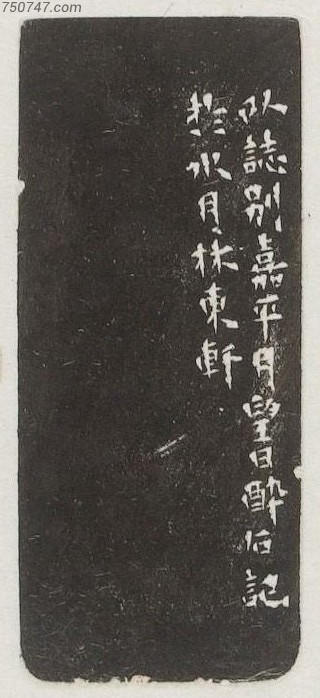 750747.com
以誌別嘉平月望日醉后記
於水月林東軒